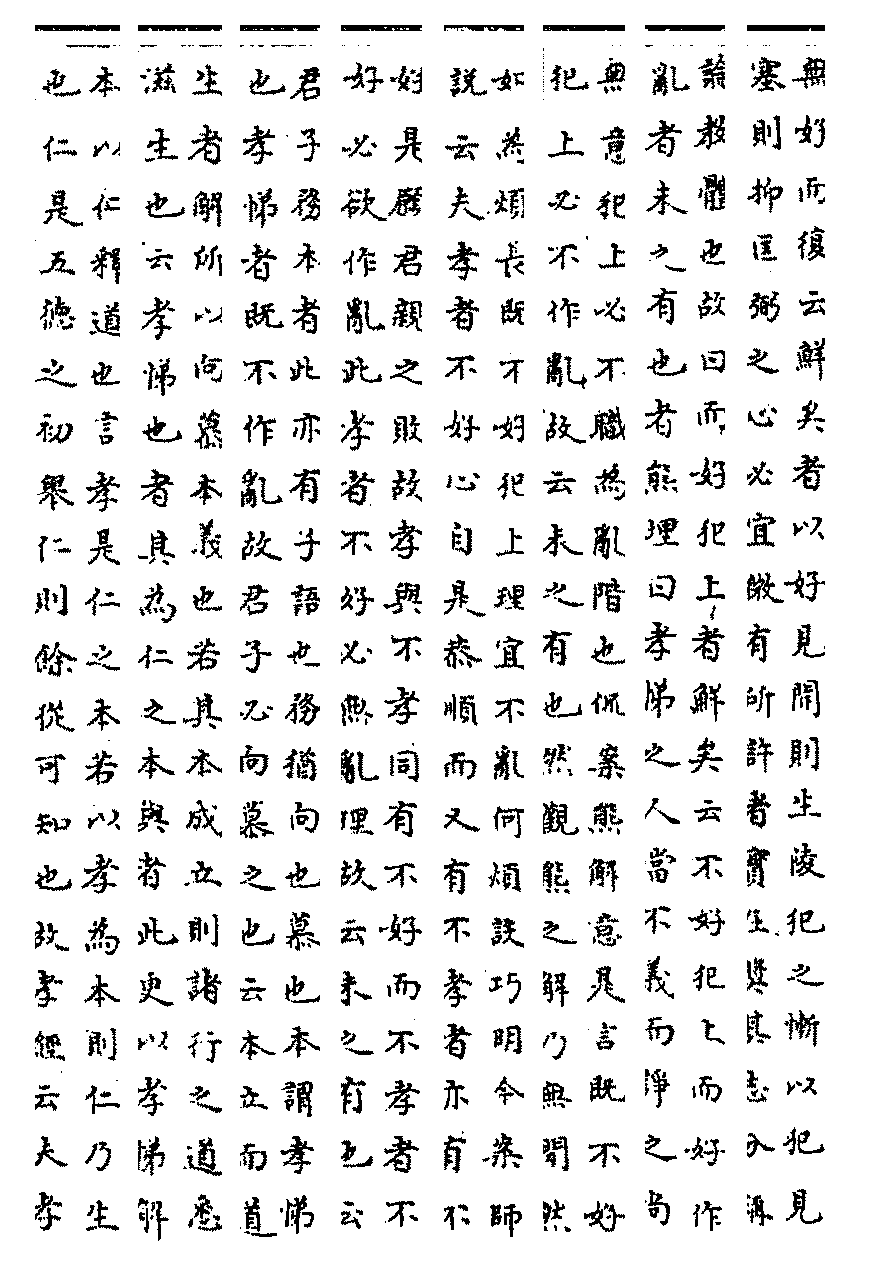 無好而復云鮮矣者以好見開則生陵犯之漸以犯見
塞則抑匡弼之心必宜微有所許者實在獎其志分稱
論教體也故曰而好犯上者鮮矣云不好犯上而好作
亂者未之有也者熊理曰孝悌之人當不義而諍之尚
無意犯上必不職為亂階也侃案熊解意是言既不好
犯上必不作亂故云未之有也然觀熊之解乃無間然
如為煩長既不好犯上理宜不亂何煩設巧明今案師
說云夫孝者不好心自是恭順而又有不孝者亦有不
好是願君親之敗故孝與不孝同有不好而不孝者不
好必欲作亂此孝者不好必無亂理故云未之有也云
君子務本者此亦有子語也務猶向也慕也本謂孝悌
也孝悌者既不作亂故君子必向慕之也云本立而道
生者解所以向慕本義也若其本成立則諸行之道悉
滋生也云孝悌也者其為仁之本與者此更以孝悌解
本以仁釋道也言孝是仁之本若以孝為本則仁乃生
也仁是五德之初舉仁則餘從可知也故孝經云夫孝